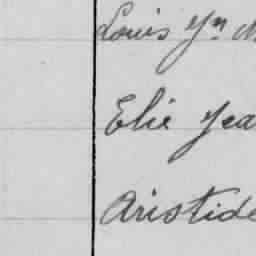 Louis Jn
Elie Jea
Aristide